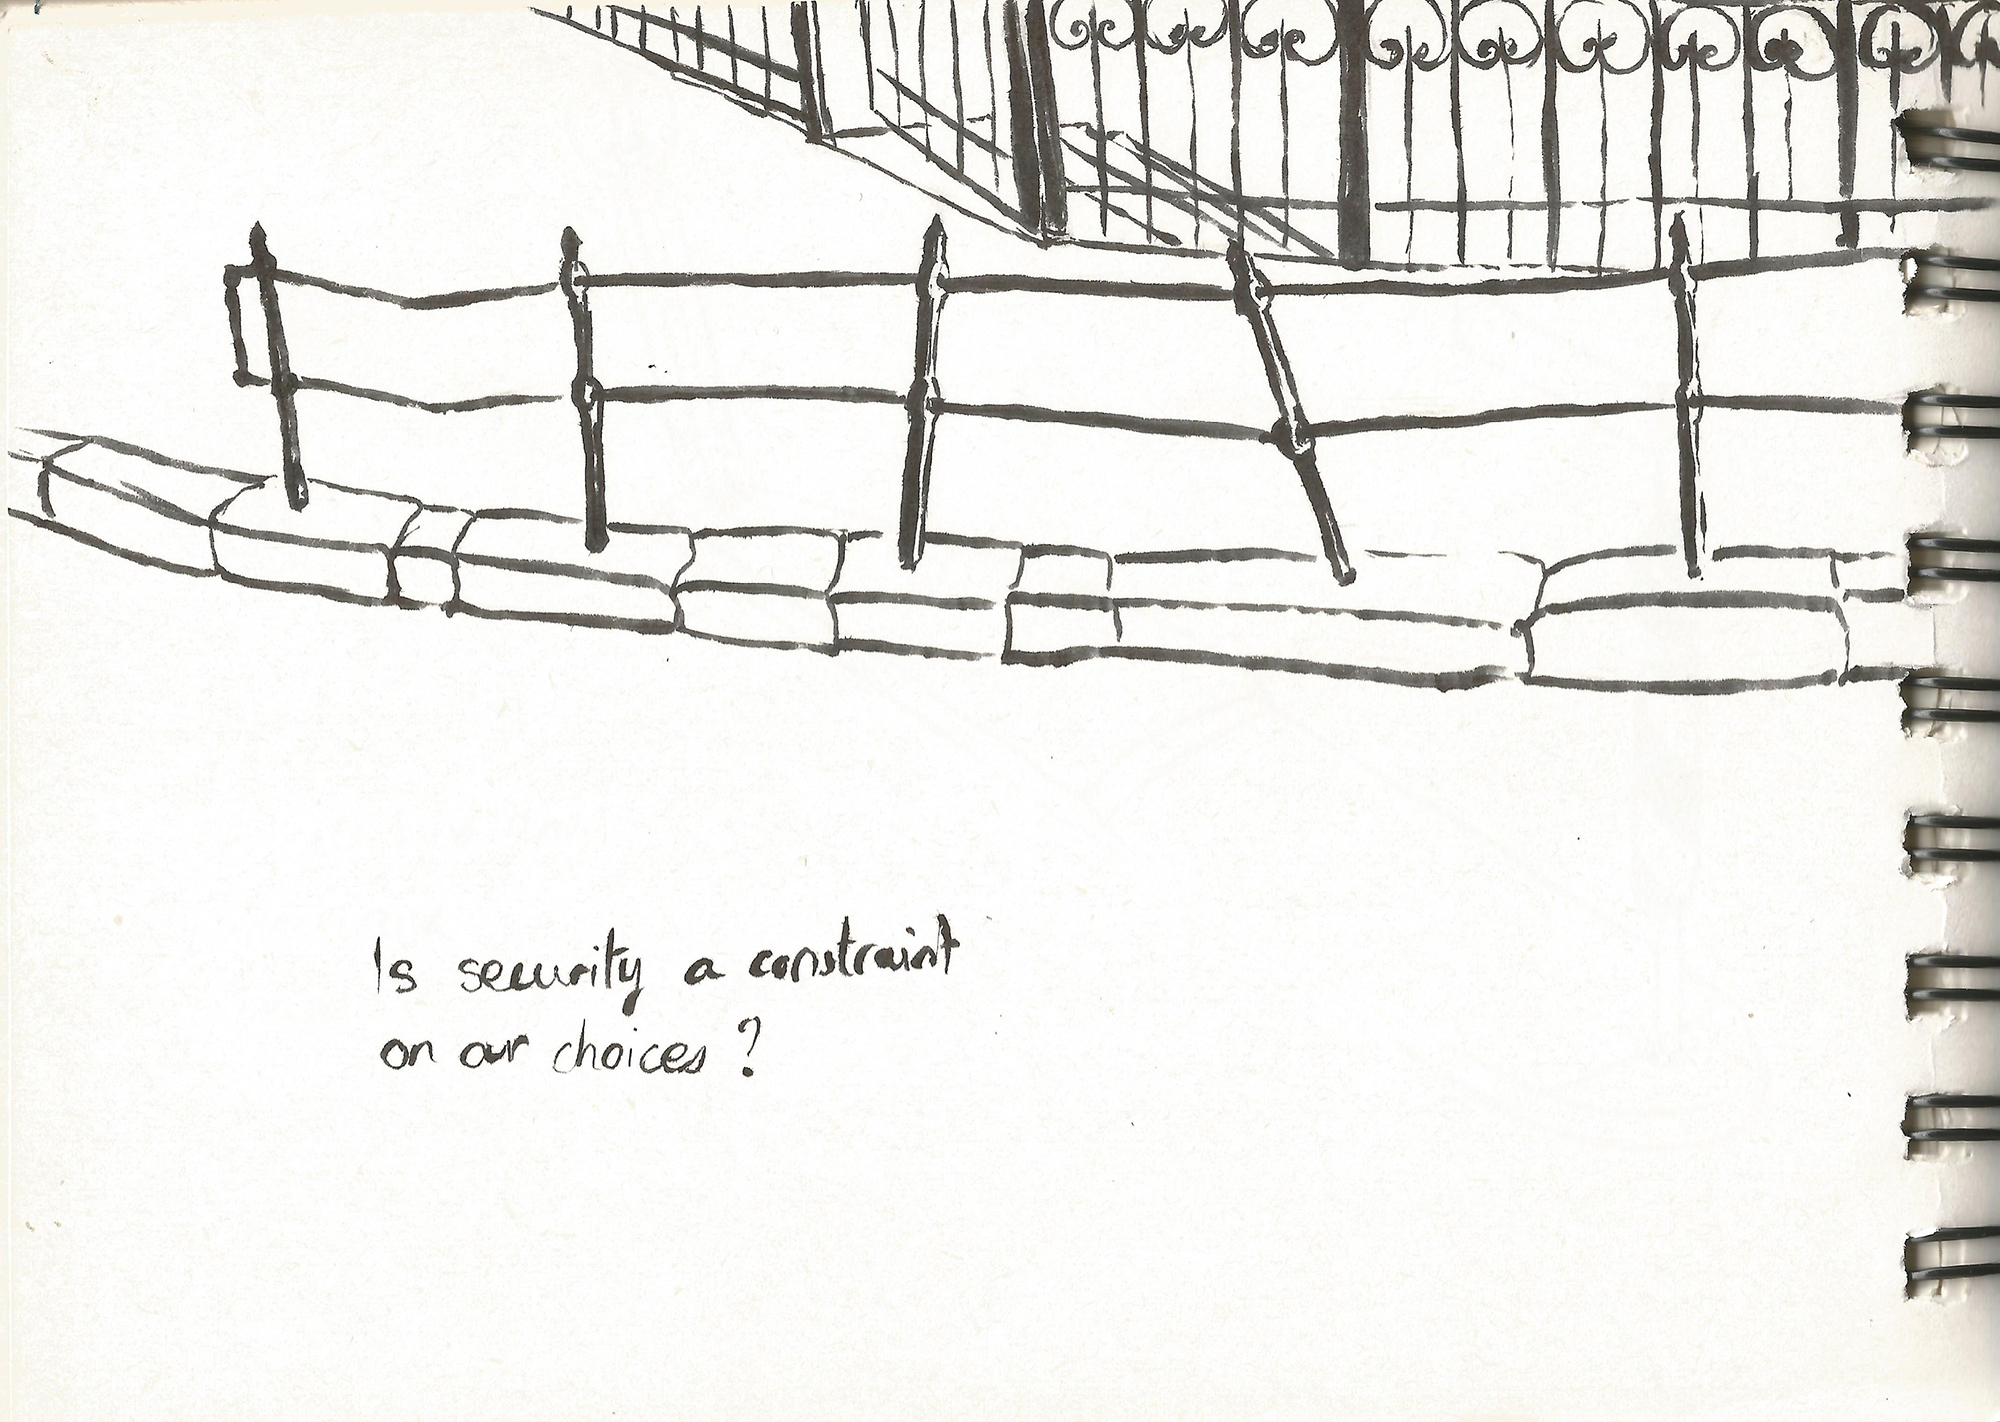 Is security a constraint
on our choices ?